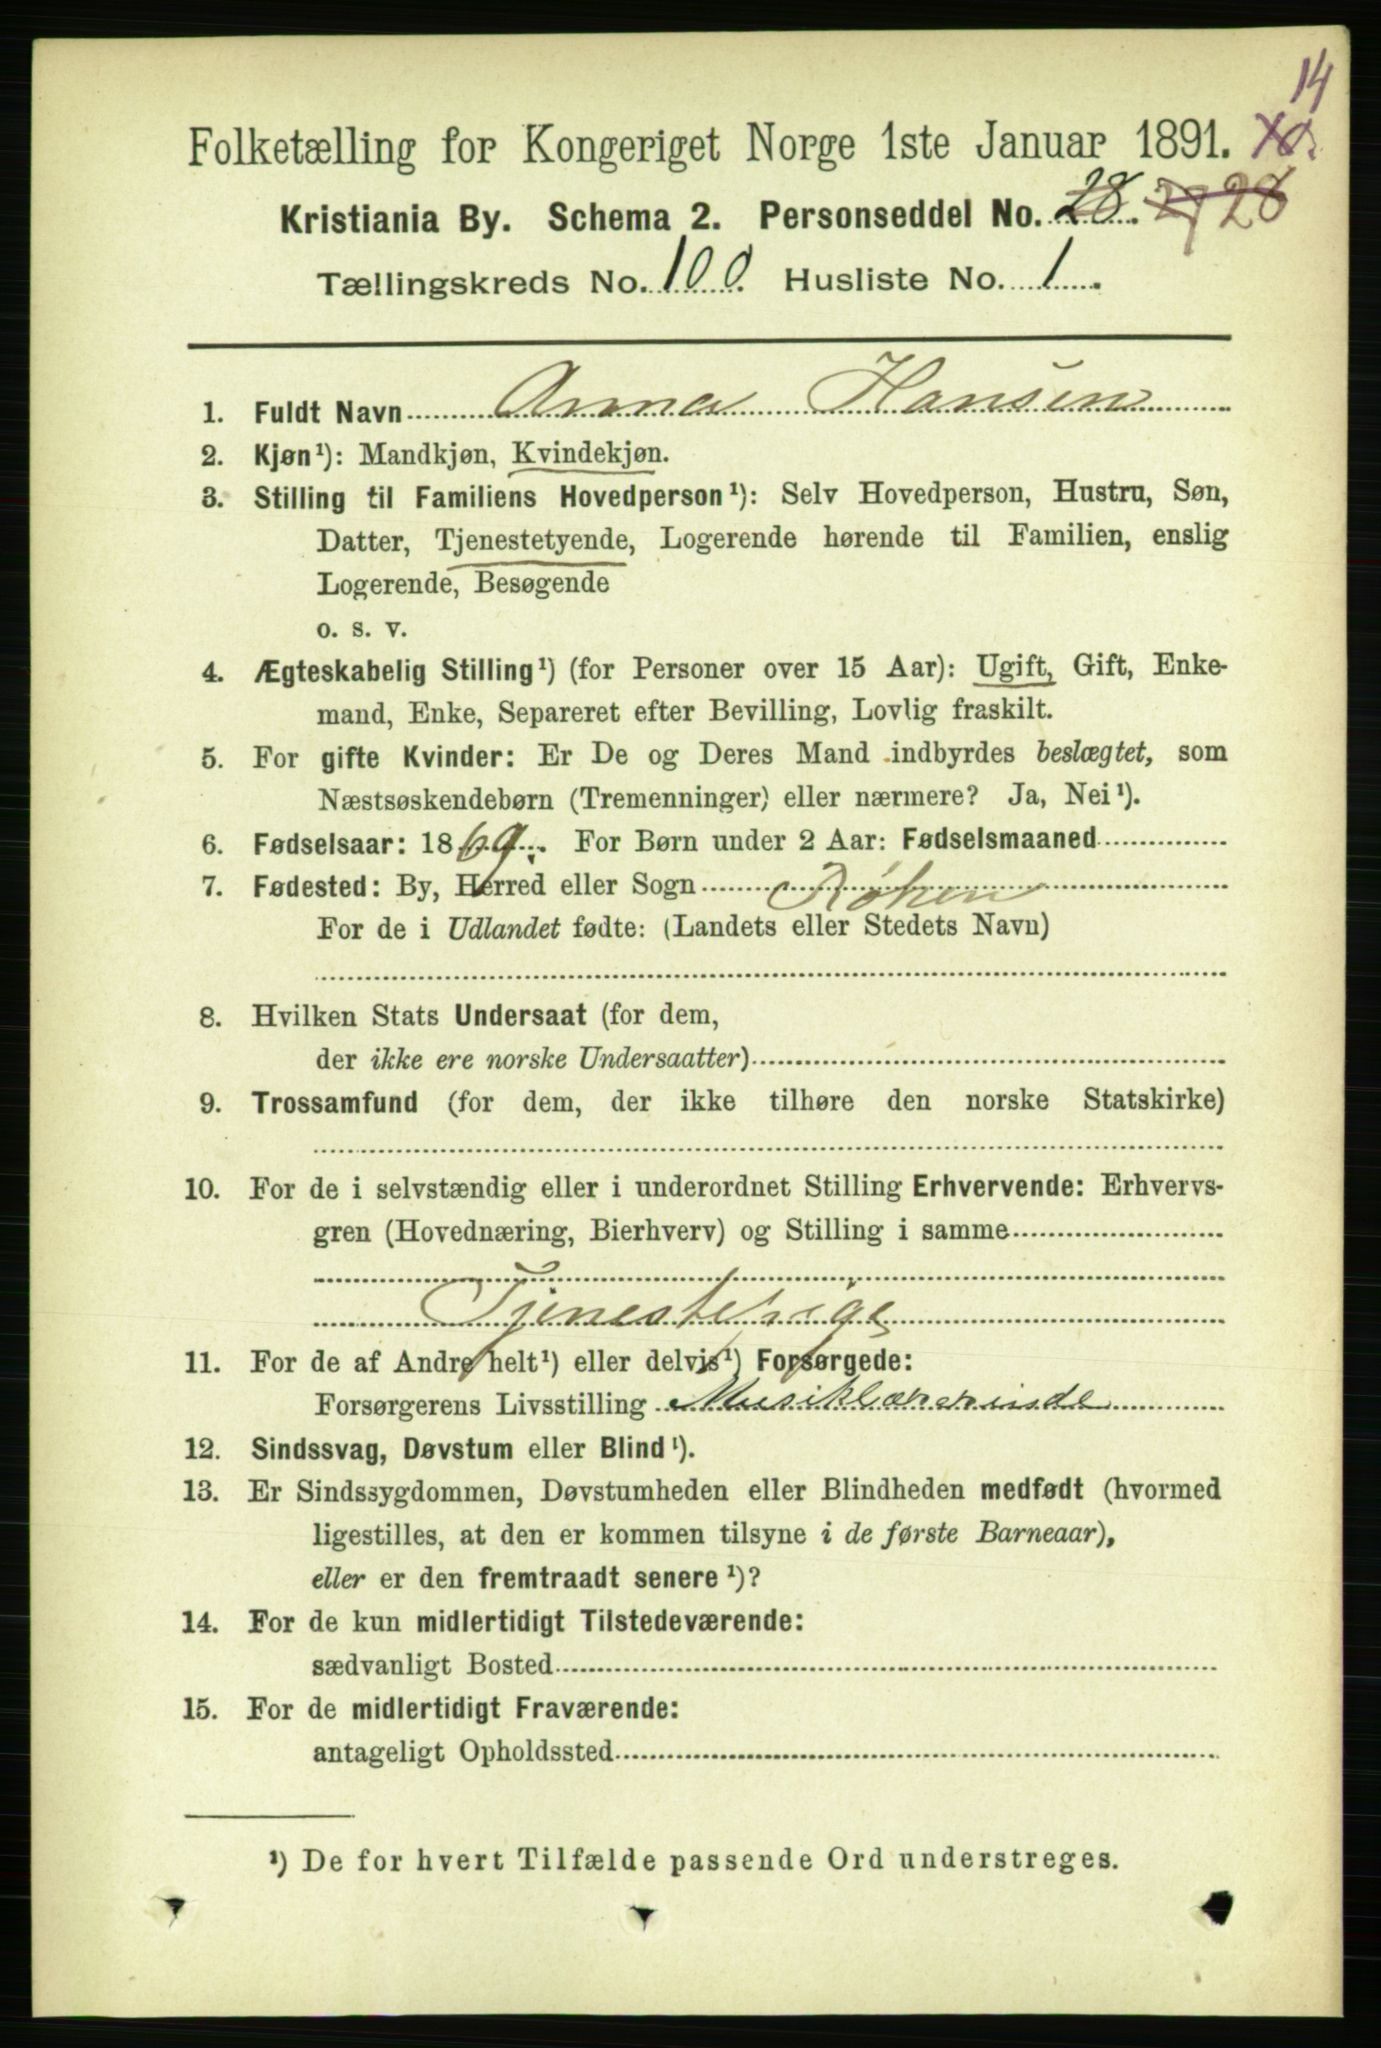 14
Folketælling for Kongeriget Norge 1ste Januar 1891. 10.
Kristiania By. Schema 2. Personseddel No. 28. 27 28
Tællingskreds No. 100. Husliste No. 1.
1. Fuldt Navn Anna Hansen
2. Kjøn¹): Mandkjøn, Kvindekjøn.
3. Stilling til Familiens Hovedperson¹): Selv Hovedperson, Hustru, Søn,
Datter, Tjenestetyende, Logerende hørende til Familien, enslig
Logerende, Besøgende
o. s. v.
4. Ægteskabelig Stilling¹) (for Personer over 15 Aar): Ugift, Gift, Enke-
mand, Enke, Separeret efter Bevilling, Lovlig fraskilt.
5. For gifte Kvinder: Er De og Deres Mand indbyrdes beslægtet, som
Næstsøskendebørn (Tremenninger) eller nærmere? Ja, Nei¹).
6. Fødselsaar: 1869. For Børn under 2 Aar: Fødselsmaaned
7. Fødested: By, Herred eller Sogn Røken
For de i Udlandet fødte: (Landets eller Stedets Navn)
8. Hvilken Stats Undersaat (for dem,
der ikke ere norske Undersaatter)
9. Trossamfund (for dem, der ikke tilhøre den norske Statskirke)
10. For de i selvstændig eller i underordnet Stilling Erhvervende: Erhvervs-
gren (Hovednæring, Bierhverv) og Stilling i samme
Tjenestepige
11. For de af Andre helt¹) eller delvis¹) Forsørgede:
Forsørgerens Livsstilling Musiklærerinde
12. Sindssvag, Døvstum eller Blind¹).
13. Er Sindssygdommen, Døvstumheden eller Blindheden medfødt (hvormed
ligestilles, at den er kommen tilsyne i de første Barneaar),
eller er den fremtraadt senere¹)?
14. For de kun midlertidigt Tilstedeværende:
sædvanligt Bosted
15. For de midlertidigt Fraværende:
antageligt Opholdssted
¹) De for hvert Tilfælde passende Ord understreges.